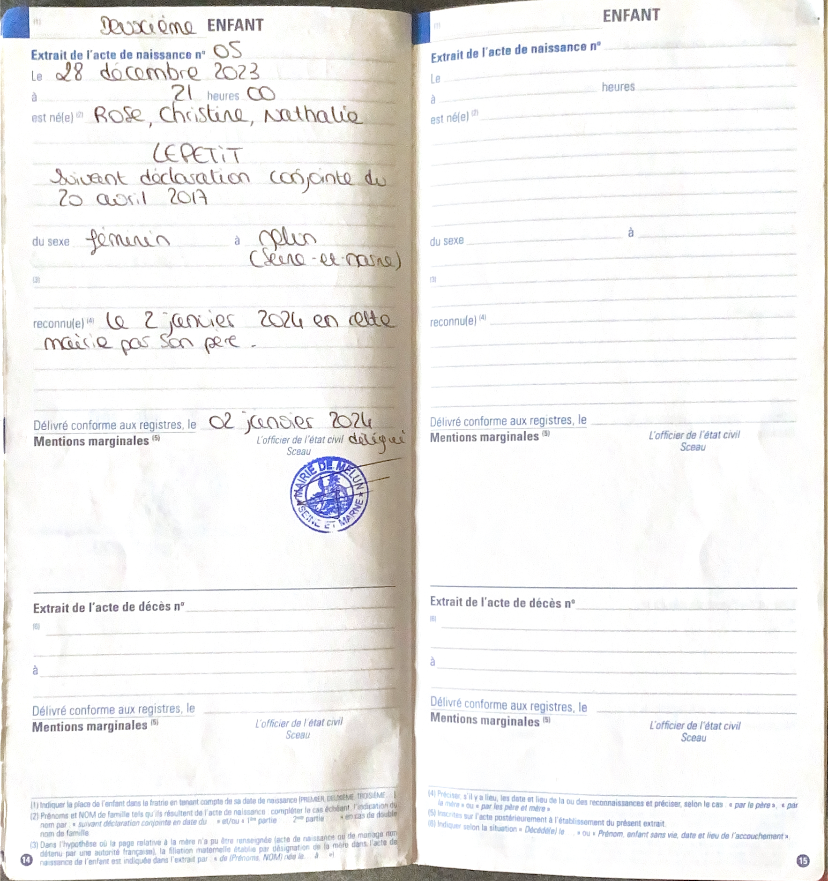 (1) Deuxième ENFANT
Extrait de l'acte de naissance n° 05
Le 28 décembre 2023
à 21 heures 00
est né(e) (2) Rose, Christine, Nathalie
LEPETIT
Suivant déclaration conjointe du
20 avril 2017
du sexe féminin à Melun
(Seine-et-Marne)
(3)
reconnu(e) (4) Le 2 janvier 2024 en cette
mairie par son père.
Délivré conforme aux registres, le 02 janvier 2024
Mentions marginales (5) L'officier de l'état civil délégué
Sceau
MAIRIE DE MELUN
SEINE ET MARNE
Extrait de l'acte de décès n°
(6)
à
Délivré conforme aux registres, le
Mentions marginales (5) L'officier de l'état civil
Sceau
(1) Indiquer la place de l'enfant dans la fratrie en tenant compte de sa date de naissance (PREMIER, DEUXIÈME, TROISIÈME...)
(2) Prénoms et NOM de famille tels qu'ils résultent de l'acte de naissance compléter le cas échéant l'indication du
nom par « suivant déclaration conjointe en date du » et/ou « 1ère partie 2ème partie » en cas de double
nom de famille
(3) Dans l'hypothèse où la page relative à la mère n'a pu être renseignée (acte de naissance ou de mariage non
détenu par une autorité française), la filiation maternelle établie par désignation de la mère dans l'acte de
naissance de l'enfant est indiquée dans l'extrait par « de (Prénoms, NOM) née le... à »
14
(1) ENFANT
Extrait de l'acte de naissance n°
Le
à heures
est né(e) (2)
du sexe à
(3)
reconnu(e) (4)
Délivré conforme aux registres, le
Mentions marginales (5) L'officier de l'état civil
Sceau
Extrait de l'acte de décès n°
(6)
à
Délivré conforme aux registres, le
Mentions marginales (5) L'officier de l'état civil
Sceau
(4) Préciser, s'il y a lieu, les date et lieu de la ou des reconnaissances et préciser, selon le cas « par le père », « par
la mère » ou « par les père et mère »
(5) Inscrites sur l'acte postérieurement à l'établissement du présent extrait.
(6) Indiquer selon la situation « Décédé(e) le » ou « Prénom, enfant sans vie, date et lieu de l'accouchement ».
15